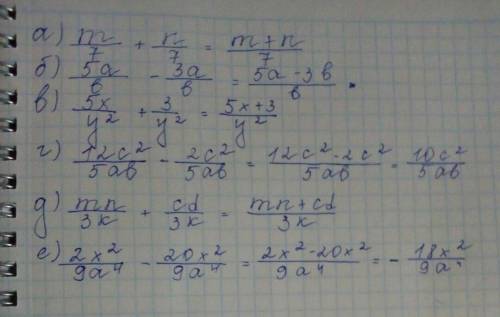 а) m/7 + n/7 = m+n/7
б) 5a/в - 3a/в = 5a-3в/в .
в) 5x/y² + 3/y² = 5x+3/y²
г) 12c²/5aв - 2c²/5aв = 12c²-2c²/5aв = 10c²/5aв
д) mn/3k + cd/3k = mn+cd/3k
е) 2x²/9a⁴ - 20x²/9a⁴ = 2x²-20x²/9a⁴ = - 18x²/9a⁴